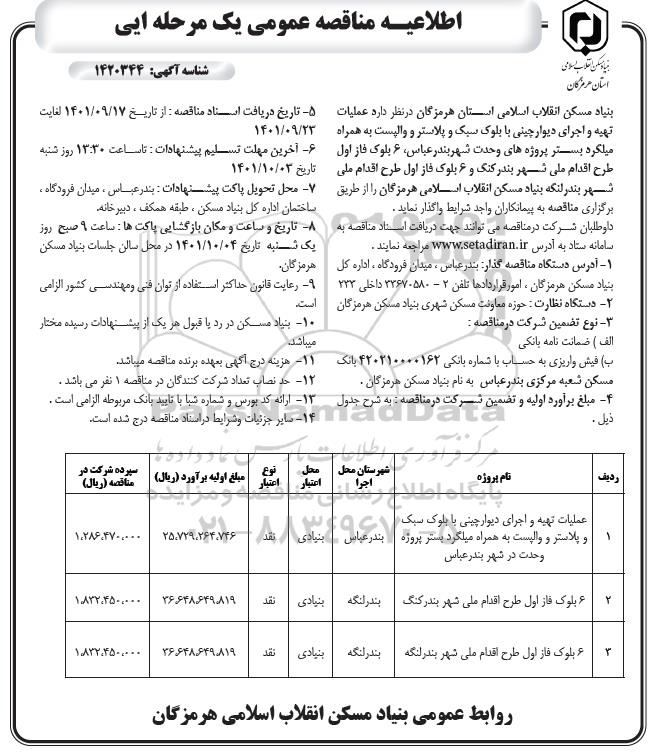 اطلاعیـه مناقصه عمومی یک مرحله ایی
بنیاد مسکن انقلاب اسلامی
استان هرمزگان
شناسه آگهی: ۱۴۲۰۳۴۴
بنیاد مسکن انقلاب اسلامی استـان هرمزگان درنظر دارد عملیات
تهیه و اجرای دیوارچینی با بلوک سبک و پلاستر و والپست به همراه
میلگرد بستر پروژه های وحدت شهربندرعباس، ۶ بلوک فاز اول
طرح اقدام ملی شهر بندرکنگ و ۶ بلوک فاز اول طرح اقدام ملی
شـهر بندرلنگه بنیاد مسکن انقلاب اسـلامی هرمزگان را از طریق
برگزاری مناقصه به پیمانکاران واجد شرایط واگذار نماید .
داوطلبان شرکت درمناقصه می توانند جهت دریافت اسناد مناقصه به
سامانه ستاد به آدرس www.setadiran.ir مراجعه نمایند .
۱- آدرس دستگاه مناقصه گذار: بندرعباس ، میدان فرودگاه ، اداره کل
بنیاد مسکن هرمزگان ، امورقراردادها تلفن ۲ - ۳۳۶۷۰۵۸۰ داخلی ۲۳۳
۲- دستگاه نظارت : حوزه معاونت مسکن شهری بنیاد مسکن هرمزگان
۳- نوع تضمین شرکت درمناقصه :
الف ) ضمانت نامه بانکی
ب) فیش واریزی به حسـاب با شماره بانکی ۴۲۰۲۱۰۰۰۰۱۶۲ بانک
مسکن شعبه مرکزی بندرعباس به نام بنیاد مسکن هرمزگان .
۴- مبلغ برآورد اولیه و تضمین شـرکت درمناقصه : به شرح جدول
ذیل .
۵- تاریخ دریافت اسـناد مناقصه : از تاریـخ ۱۴۰۱/۰۹/۱۷ لغایت
۱۴۰۱/۰۹/۲۳
۶- آخرین مهلت تسـلیم پیشنهادات : تاسـاعت ۱۳:۳۰ روز شنبه
تاریخ ۱۴۰۱/۱۰/۰۳
۷- محل تحویل پاکت پیشـنهادات : بندرعبـاس ، میدان فرودگاه ،
ساختمان اداره کل بنیاد مسکن ، طبقه همکف ، دبیرخانه.
۸- تاریخ و ساعت و مکان بازگشایی پاکت ها : ساعت ۹ صبح روز
یک شـنبه تاریخ ۱۴۰۱/۱۰/۰۴ در محل سالن جلسات بنیاد مسکن
هرمزگان.
۹- رعایت قانون حداکثر اسـتفاده از توان فنی ومهندسـی کشور الزامی
است.
۱۰- بنیاد مسـکن در رد یا قبول هر یک از پیشـنهادات رسیده مختار
میباشد.
۱۱- هزینه درج آگهی بعهده برنده مناقصه میباشد.
۱۲- حد نصاب تعداد شرکت کنندگان در مناقصه ۱ نفر می باشد .
۱۳- ارائه کد بورس و شماره شبا با تایید بانک مربوطه الزامی است .
۱۴- سایر جزئیات وشرایط دراسناد مناقصه درج شده است.
ParsNamadData
مرکز فرآوری اطلاعات پارس نماد داده ها
پایگاه اطلاع رسانی مناقصه و مزایده
۰۲۱-۸۸۳۴۹۶۷۰-۵
ردیف | نام پروژه | شهرستان محل اجرا | محل اعتبار | نوع اعتبار | مبلغ اولیه برآورد (ریال) | سپرده شرکت در مناقصه (ریال)
۱ | عملیات تهیه و اجرای دیوارچینی با بلوک سبک و پلاستر و والپست به همراه میلگرد بستر پروژه وحدت در شهر بندرعباس | بندرعباس | بنیادی | نقد | ۲۵،۷۲۹،۲۶۴،۷۴۶ | ۱،۲۸۶،۴۷۰،۰۰۰
۲ | ۶ بلوک فاز اول طرح اقدام ملی شهر بندرکنگ | بندرلنگه | بنیادی | نقد | ۳۶،۶۴۸،۶۴۹،۸۱۹ | ۱،۸۳۲،۴۵۰،۰۰۰
۳ | ۶ بلوک فاز اول طرح اقدام ملی شهر بندرلنگه | بندرلنگه | بنیادی | نقد | ۳۶،۶۴۸،۶۴۹،۸۱۹ | ۱،۸۳۲،۴۵۰،۰۰۰
روابط عمومی بنیاد مسکن انقلاب اسلامی هرمزگان